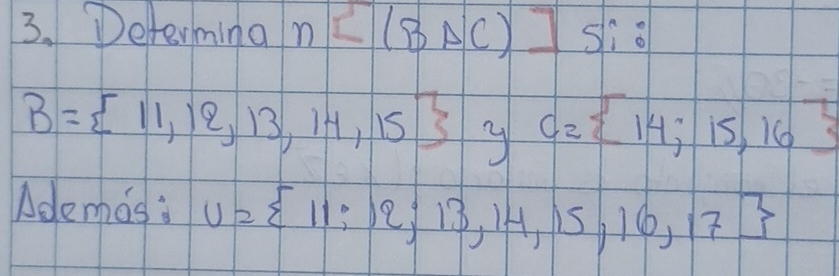 3. Determina n [ (B Δ C) ] si:
B = { 11, 12, 13, 14, 15 } y C = { 14; 15, 16 }
Además: U = { 11; 12; 13, 14, 15, 16, 17 }